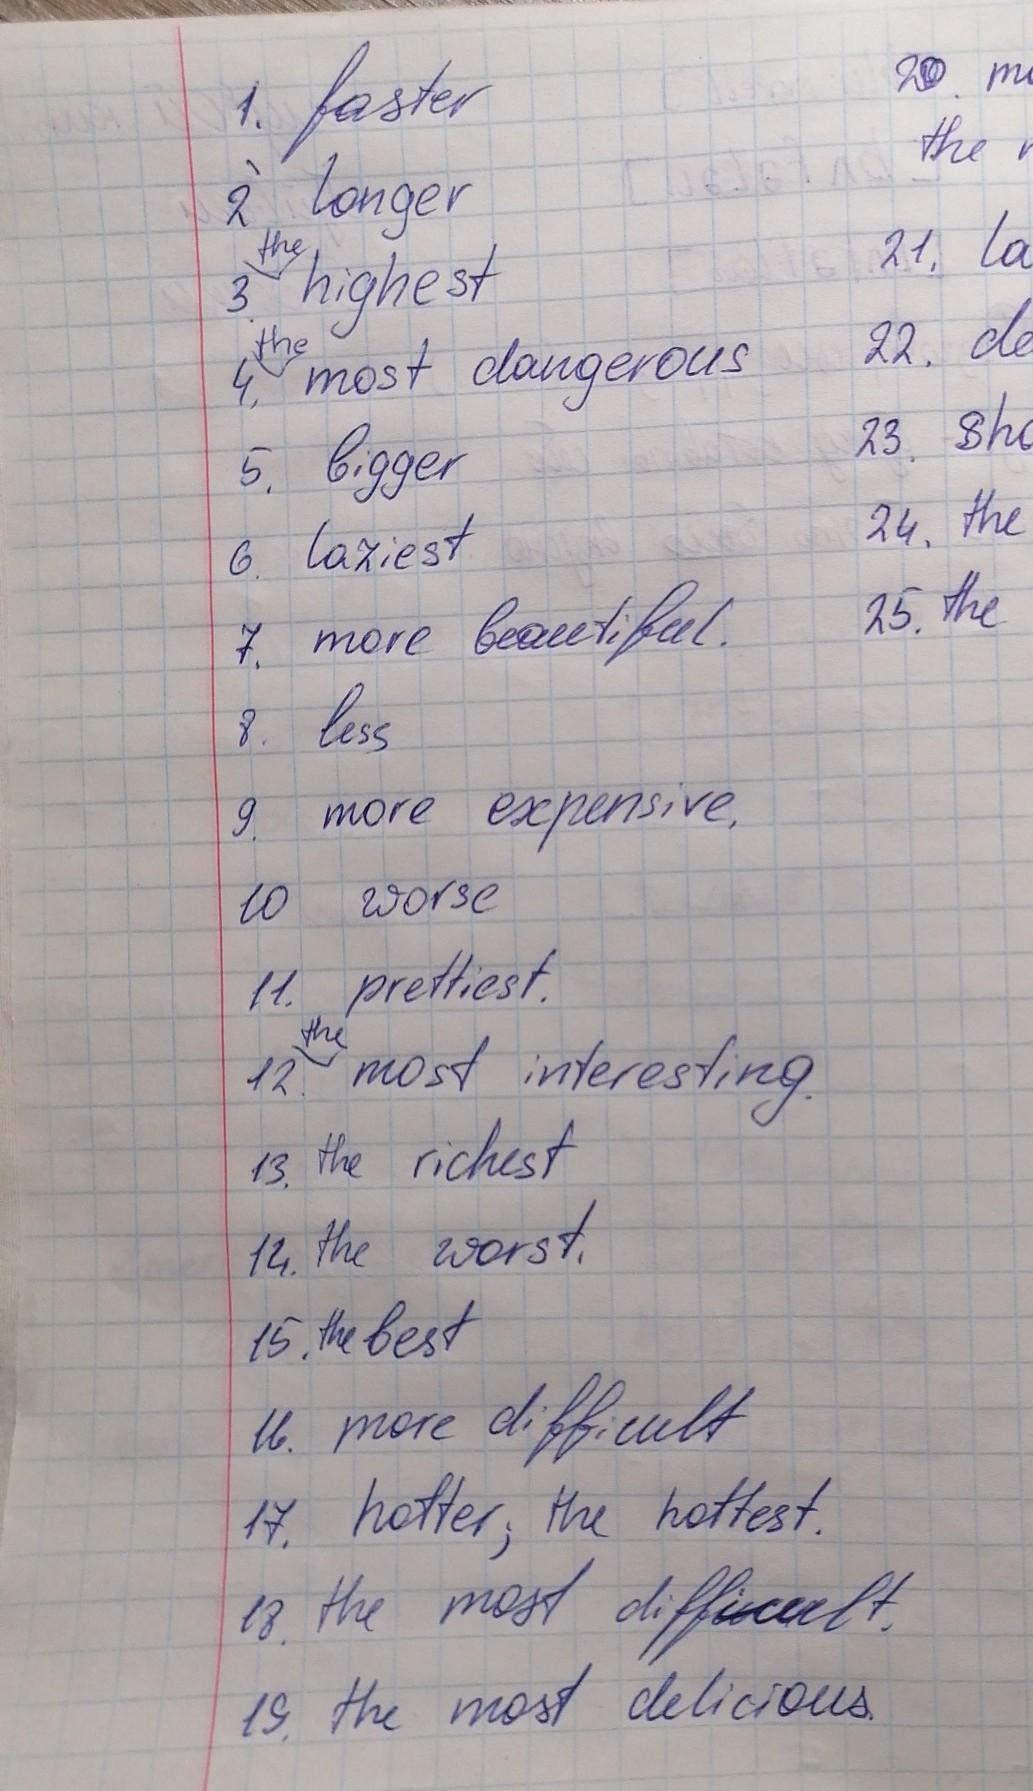 1. faster
2 longer
3. the highest
4. the most dangerous
5. bigger
6. laziest
7. more beautiful.
8. less
9. more expensive.
10 worse
11. prettiest.
12. the most interesting.
13. the richest
14. the worst.
15. the best
16. more difficult
17. hotter; the hottest.
18. the most difficult.
19. the most delicious.
20.
the
21. la
22. de
23. sho
24. the
25. the